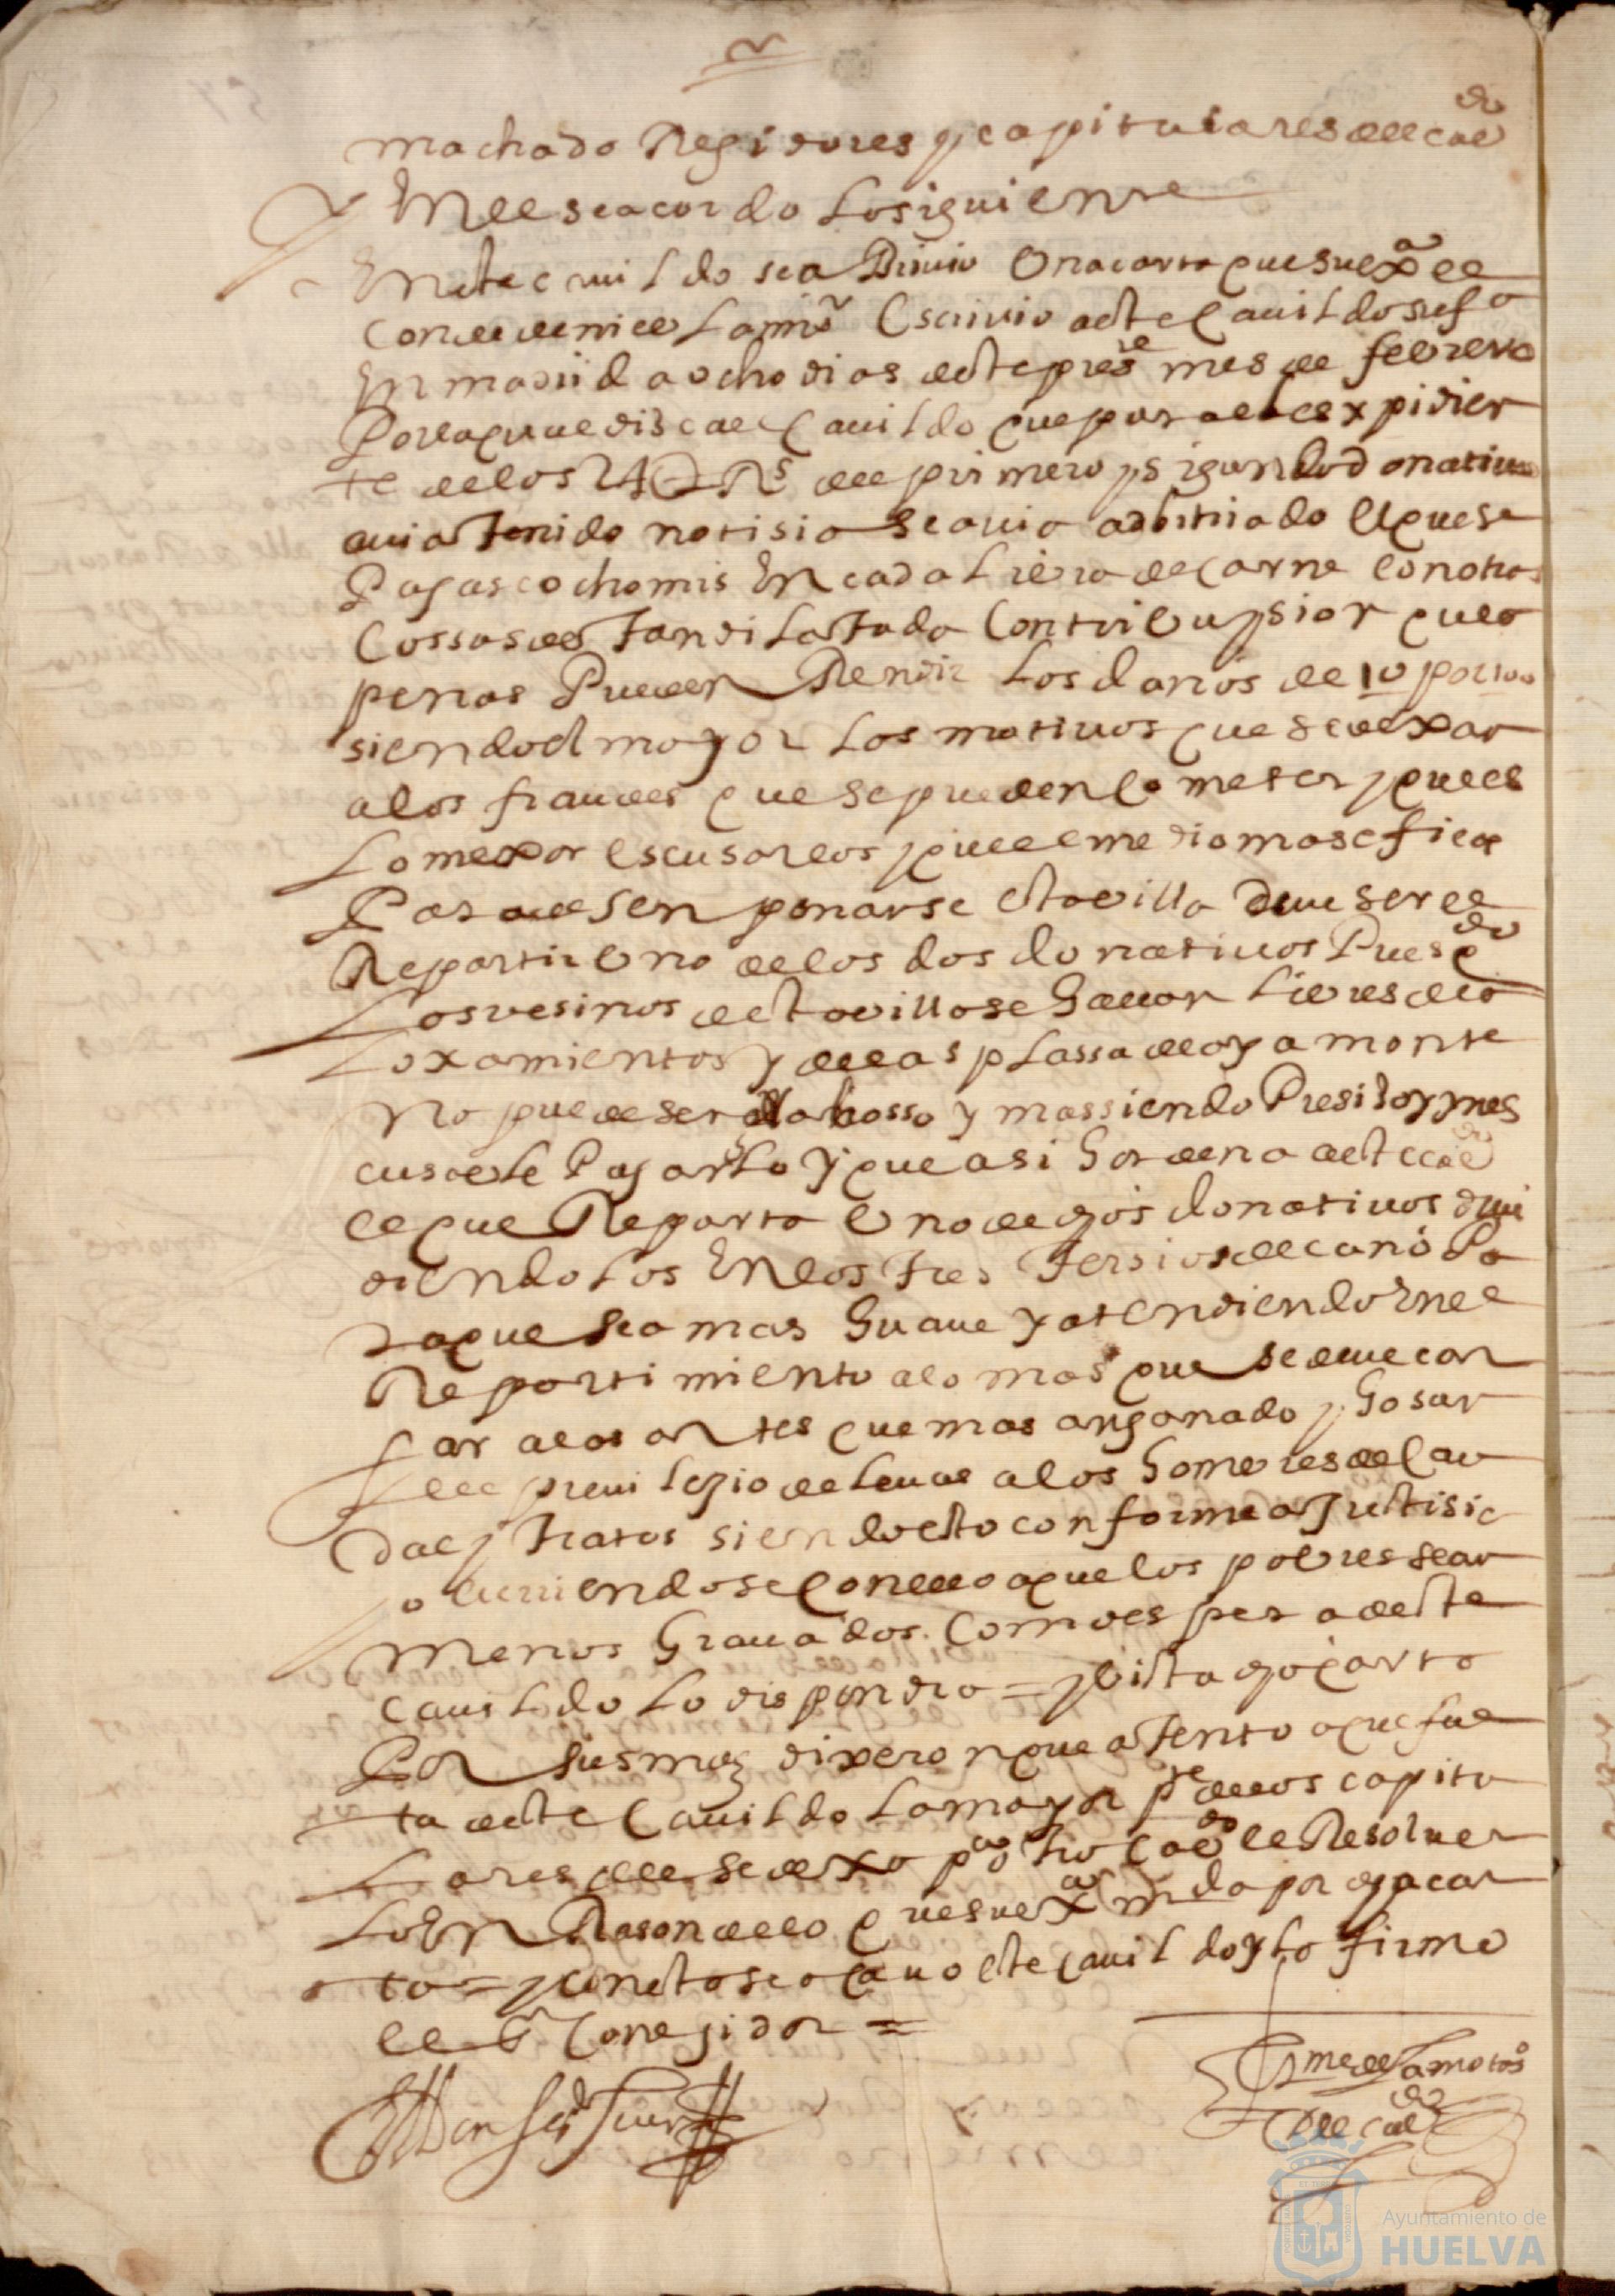 machado Regidores y capitulares deel cavdo
En el se acordo lo siguiente
En este cauildo se a Viuio Una carta que su exª el
Conde de niebla mi Sr Escriuio a este Cauildo su fª
En madrid a ocho dias deste preste mes de febrero
Por la qual dise al Cauildo que para el expidien
te de los 24U Rs del primero y sigundo donatiuo
auia tenido notisia se auia adbitriado El que se
Pagase ocho mrs En cada libra de carne Con otras
Cossas de tan dilatada Contribuysion que a
penas Pueden Rendir los daños de 10 por 100
siendo el mayor los motiuos que se dexan
a los fraudes que se pueden Cometer y que es
lo mexor escusarlos y que el medio mas efica
Para desenpenarse esta villa deue ser el
Repartir Uno de los dos donatiuos Pues qdo
Los vesinos desta villa se hallan libres de a
loxamientos y de la plassa de ayamonte
No puede ser dañosso y mas siendo Presiso yn es
cusable Pagarlo y que asi hordena a este cavdo
el que Reparta Uno de dhos donatiuos diui
diendolos En los tres tersios del año Pa
ra que sea mas suaue y atendiendo En el
Repartimiento a lo mas que se deue car
gar a los antes que mas an ganado y gosan
del preuilegio de leuas a los hombres de Cau
dal y tratos siendo esto conforme a Justisia
y auiendose Con ello a que los pobres sean
menos Grauados. Como espera deste
Cauildo lo dispondra = y Vista dha carta
Por sus mds dixeron que atento a que fal
ta deste Cauildo la mayor pte de los capitu
lares del se dexa pª otro Cavdo el Resoluer
lo En Rason de lo que su exª manda por dha car
ta = y Con esto se acauo este Cauildo y lo firmo
el Sr Corregidor =
Jme de la mota sº
del cavdo
Ayuntamiento de
HUELVA